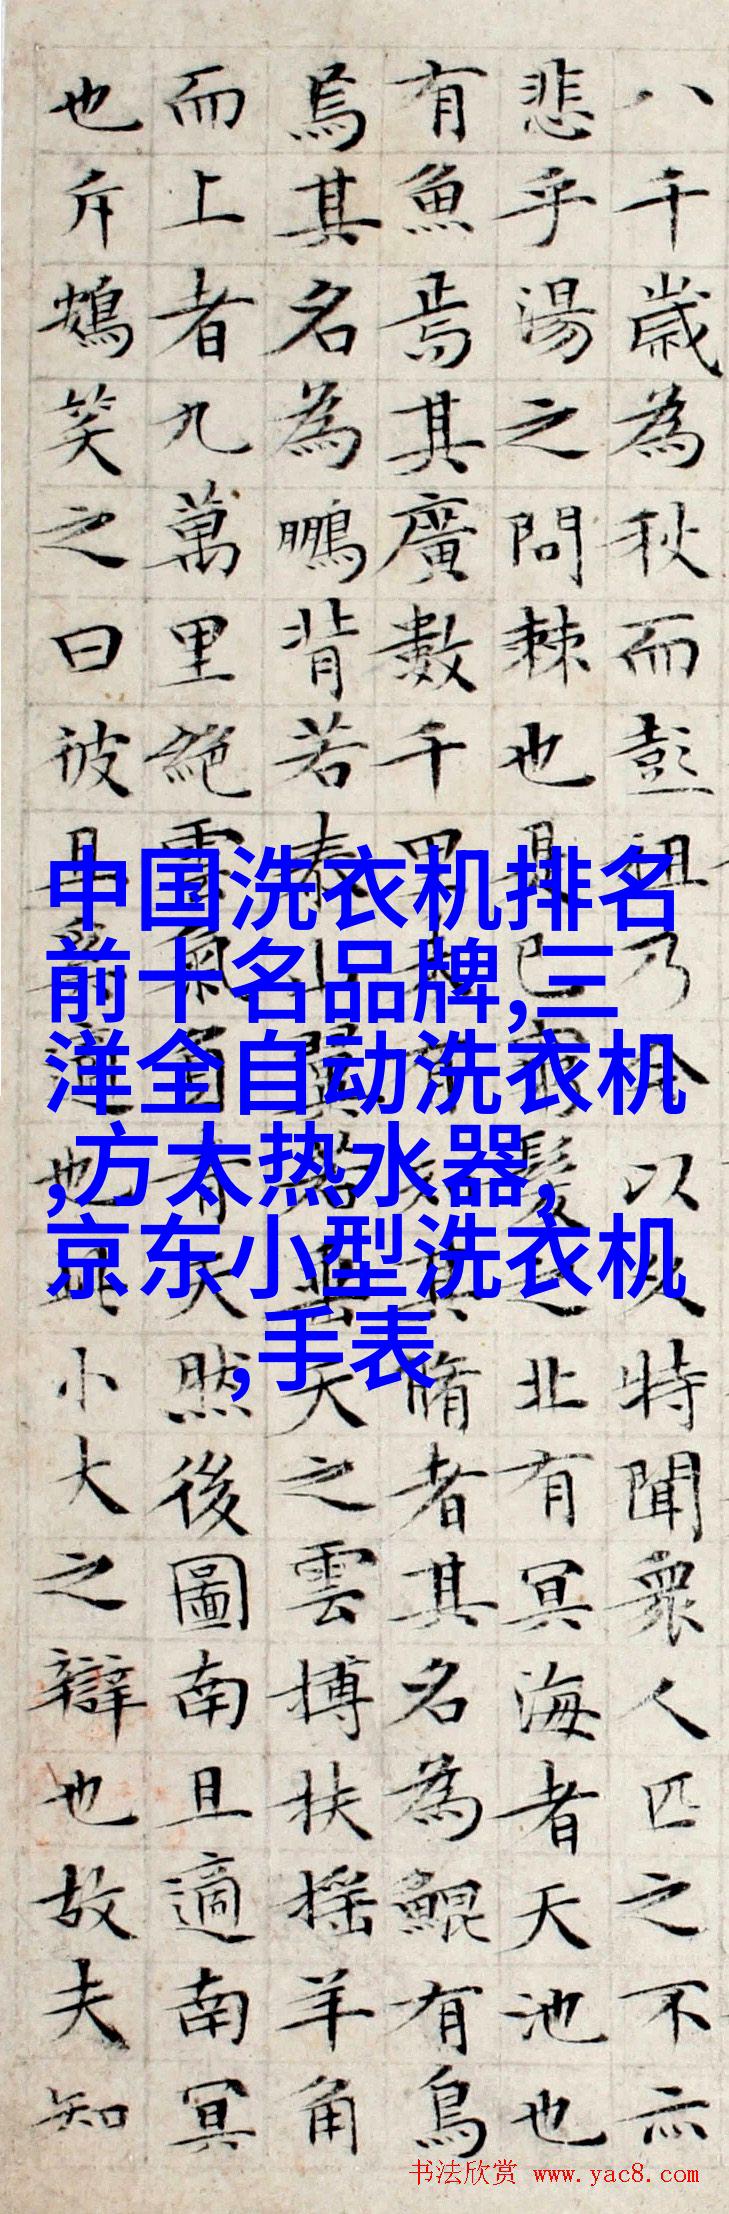 八千歲為秋而彭祖乃今以久特聞衆人匹之不亦
悲乎湯之問棘也是已窮髮之北有冥海者天池也
有魚焉其廣數千里未有知其脩者其名為鯤有鳥
焉其名為鵬背若泰山翼若垂天之雲搏扶搖羊角
而上者九萬里絶雲氣負青天然後圖南且適南冥
也斥鴳笑之曰彼且奚適也此小大之辯也故夫知
中国洗衣机排名
前十名品牌,三
洋全自动洗衣机
,方太热水器,
京东小型洗衣机
,手表
书法欣赏 www.yac8.com